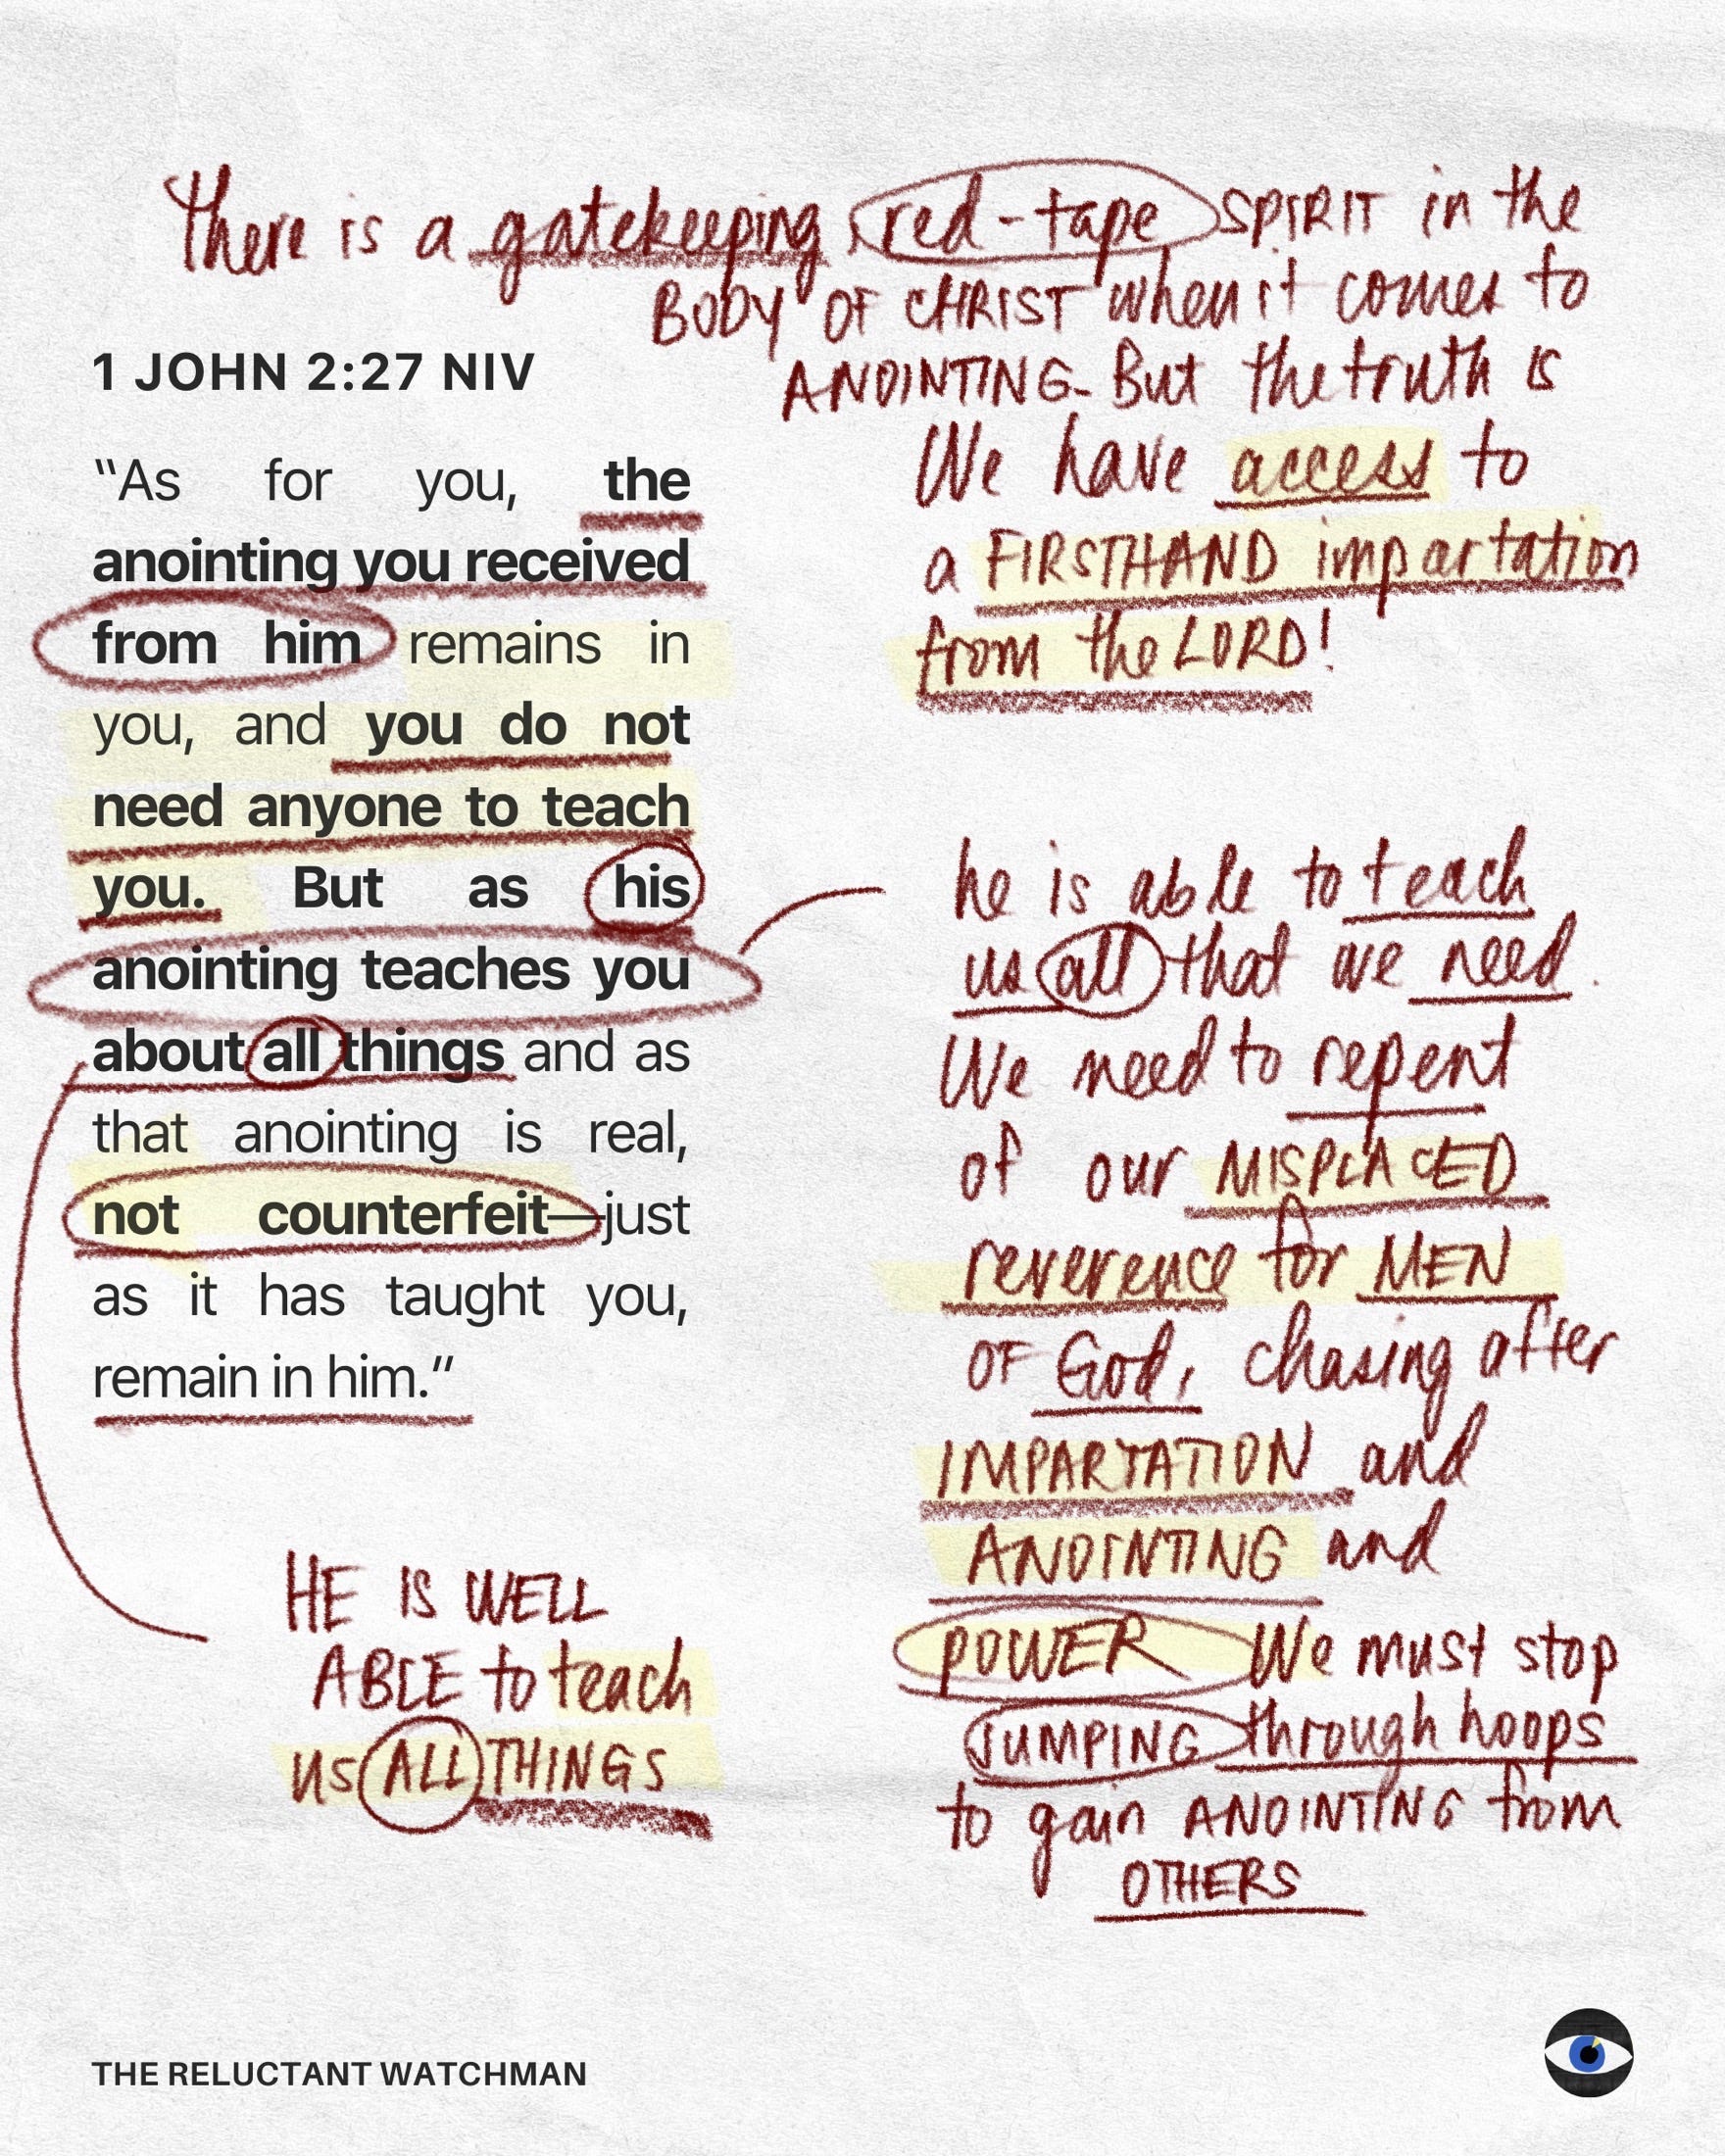 there is a gatekeeping, red-tape SPIRIT in the
BODY OF CHRIST when it comes to
ANOINTING - But the truth is
We have access to
a FIRSTHAND impartation
from the LORD!
1 JOHN 2:27 NIV
“As for you, the
anointing you received
from him remains in
you, and you do not
need anyone to teach
you. But as his
anointing teaches you
about all things and as
that anointing is real,
not counterfeit—just
as it has taught you,
remain in him.“
he is able to teach
us all that we need.
We need to repent
of our MISPLACED
reverence for MEN
OF God, chasing after
IMPARTATION and
ANOINTING and
POWER We must stop
JUMPING through hoops
to gain ANOINTING from
OTHERS
HE IS WELL
ABLE to teach
us ALL THINGS
THE RELUCTANT WATCHMAN